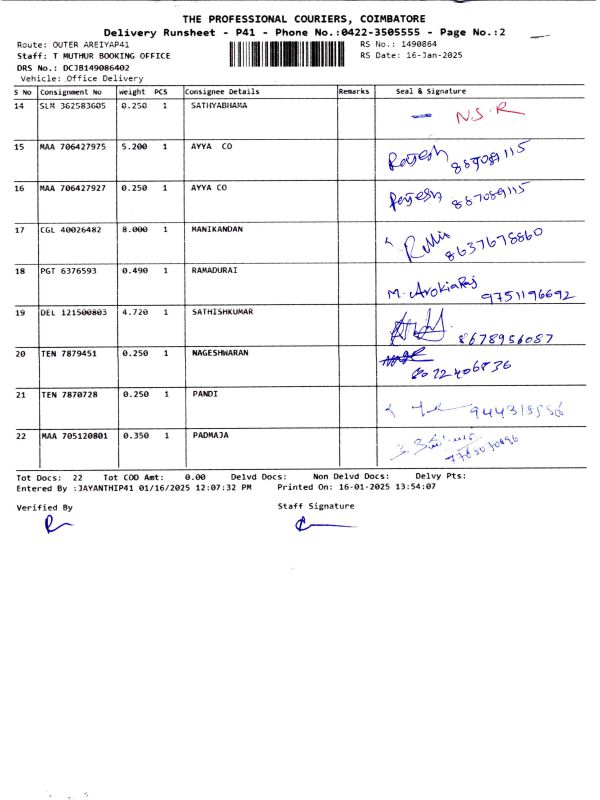 THE PROFESSIONAL COURIERS, COIMBATORE
Delivery Runsheet - P41 - Phone No.:0422-3505555 - Page No.:2
Route: OUTER AREIYAP41 RS No.: 1490864
Staff: T MUTHUR BOOKING OFFICE RS Date: 16-Jan-2025
DRS No.: DCJB149086402
Vehicle: Office Delivery
S No Consignment No Weight PCS Consignee Details Remarks Seal & Signature
14 SLM 362583605 0.250 1 SATHYABHAMA N.S.R
15 MAA 706427975 5.200 1 AYYA CO Rajesh
16 MAA 706427927 0.250 1 AYYA CO Rajesh 887089115
17 CGL 40026482 8.000 1 MANIKANDAN 8637678860
18 PGT 6376593 0.490 1 RAMADURAI M. ArokiaRaj 9751196692
19 DEL 121500803 4.720 1 SATHISHKUMAR 8678956087
20 TEN 7879451 0.250 1 NAGESHWARAN
21 TEN 7870728 0.250 1 PANDI
22 MAA 705120801 0.350 1 PADMAJA
Tot Docs: 22 Tot COD Amt: 0.00 Delvd Docs: Non Delvd Docs: Delvy Pts:
Entered By :JAYANTHIP41 01/16/2025 12:07:32 PM Printed On: 16-01-2025 13:54:07
Verified By Staff Signature